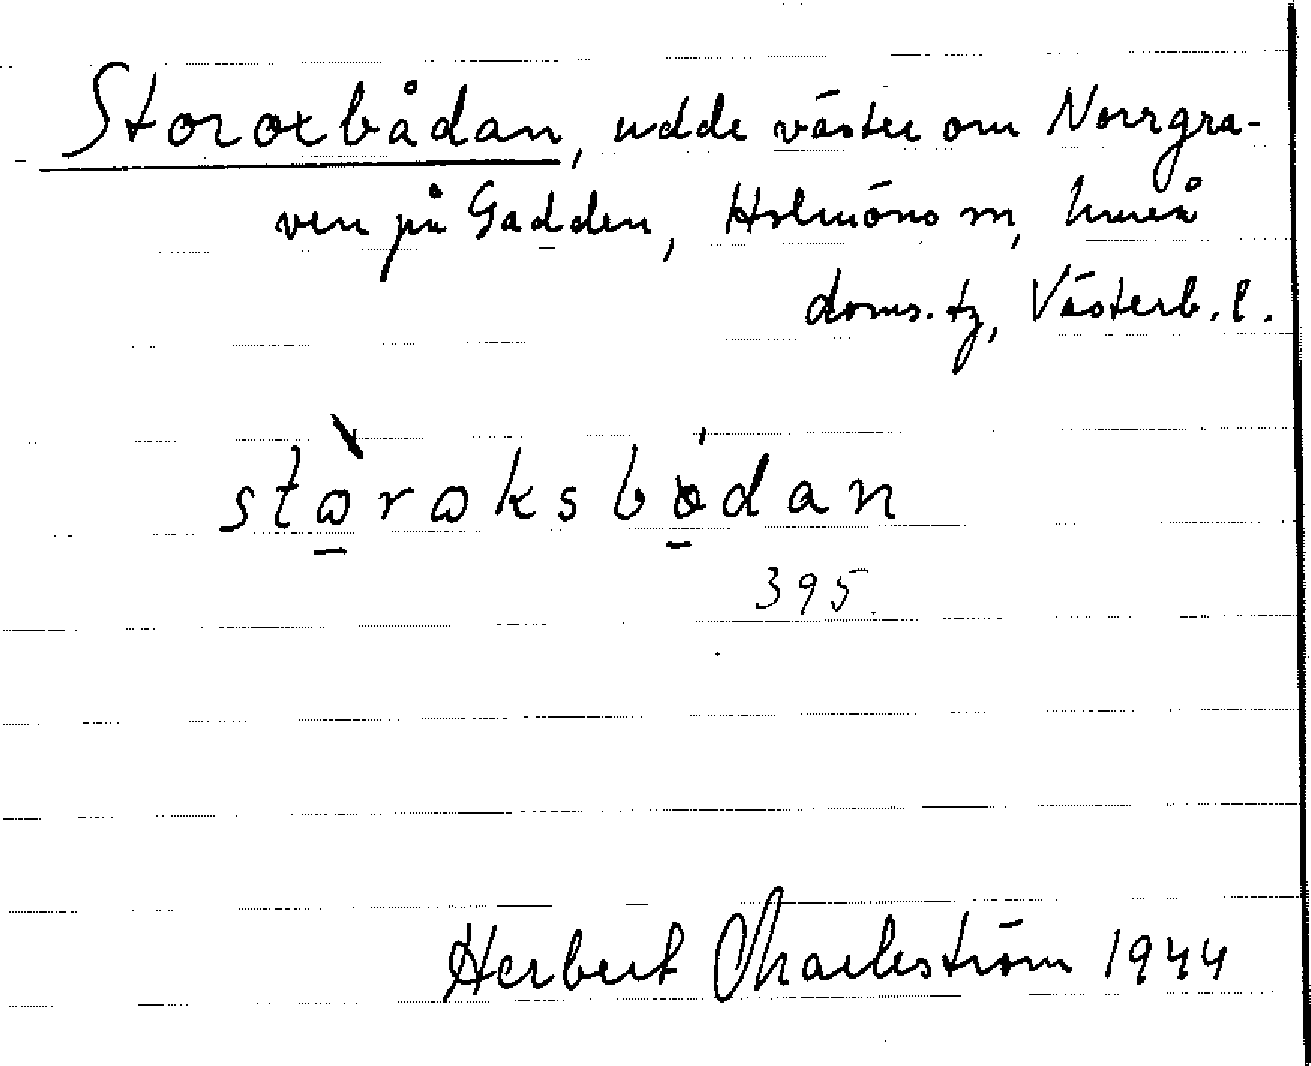 Storoxbådan, udde väster om Norrgra-
ven på Gadden, Holmöns sn, Umeå
doms. tg, Västerb. l.
stɷ̀rɷksbɷ́dan
395
Herbert Markström 1944